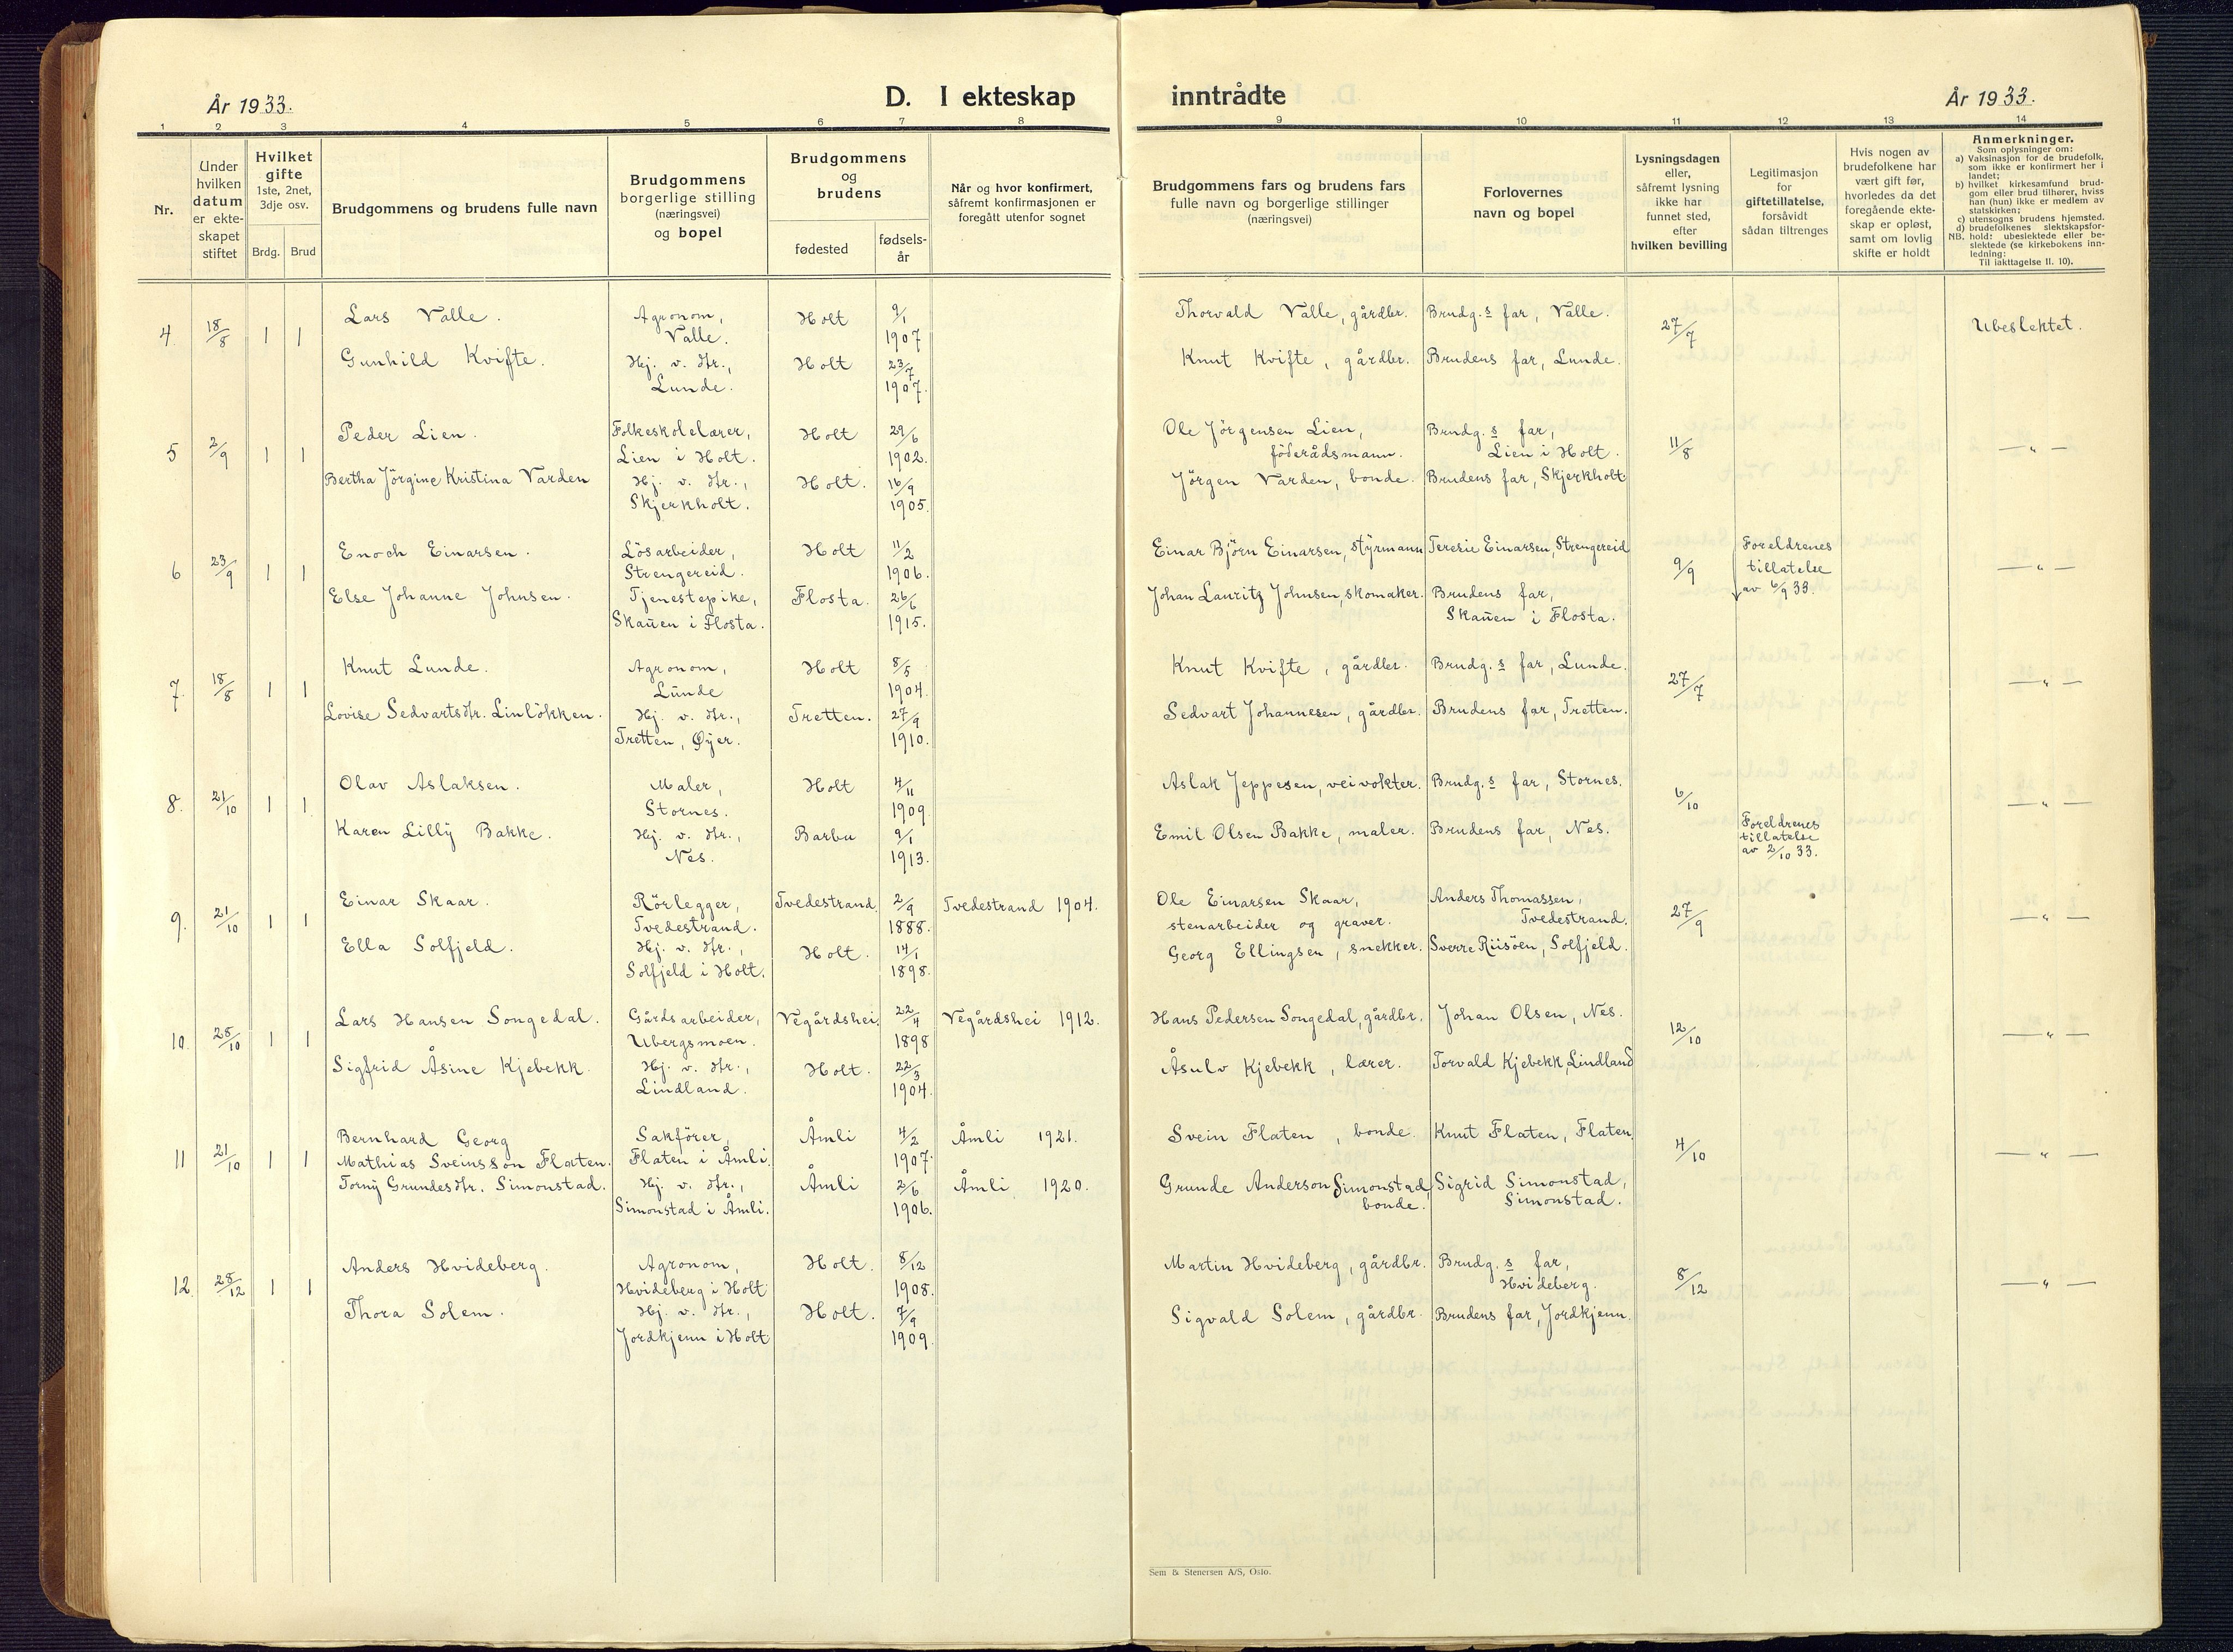 År 1933.
D. I ekteskap
inntrådte
År 1933.
1 2 3 4 5 6 7 8 9 10 11 12 13 14
Nr.
Under
hvilken
datum
er ekte-
skapet
stiftet
Hvilket
gifte
1ste, 2net,
3dje osv.
Brdg. Brud
Brudgommens og brudens fulle navn
Brudgommens
borgerlige stilling
(næringsvei)
og bopel
Brudgommens
og
brudens
fødested
fødsels-
år
Når og hvor konfirmert,
såfremt konfirmasjonen er
foregått utenfor sognet
Brudgommens fars og brudens fars
fulle navn og borgerlige stillinger
(næringsvei)
Forlovernes
navn og bopel
Lysningsdagen
eller,
såfremt lysning
ikke har
funnet sted,
efter
hvilken bevilling
Legitimasjon
for
giftetillatelse,
forsåvidt
sådan tiltrenges
Hvis nogen av
brudefolkene har
vært gift før,
hvorledes da det
foregående ekte-
skap er opløst,
samt om lovlig
skifte er holdt
Anmerkninger.
Som oplysninger om:
a) Vaksinasjon for de brudefolk,
som ikke er konfirmert her i
landet;
b) hvilket kirkesamfund brud-
gom eller brud tilhører, hviss
han (hun) ikke er medlem av
statskirken;
c) utensogns brudens hjemsted.
d) brudefolkenes slektskapsfor-
NB. hold: ubeslektede eller be-
slektede (se kirkebokens inn-
ledning:
Til iakttagelse II. 10).
4. 18/8 1 1
Lars Valle. Agronom, Holt 9/1 Thorvald Valle, gårdbr. Brudg.s far, Valle. 27/7 Ubeslektet.
Valle. 1907
Gunhild Kvifte. Hj. v. dtr., Holt 23/7 Knut Kvifte, gårdbr. Brudens far, Lunde.
Lunde. 1907.
5 2/9 1 1
Peder Lien. Folkeskolelærer, Holt 29/6 Ole Jörgensen Lien, Brudg.s far, 11/8 — " —
Lien i Holt. 1902. föderådsmann. Lien i Holt.
Bertha Jörgine Kristina Varden Hj. v. dtr., Holt. 16/9 Jörgen Varden, bonde. Brudens far, Skjerkholt
Skjerkholt. 1905.
6 23/9 1 1
Enoch Einarsen. Lösarbeider, Holt 11/2 Einar Björn Einarsen, styrmann Teresie Einarsen, Strengereid 9/9 Foreldrenes — " —
Strengereid. 1906. tillatelse
Else Johanne Johnsen. Tjenestepike, Flosta. 26/6 Johan Lauritz Johnsen, skomaker. Brudens far, av 6/9 33.
Skauen i Flosta. 1915. Skauen i Flosta.
7. 18/8 1 1
Knut Lunde. Agronom, Holt 8/5 Knut Kvifte, gårdbr. Brudg.s far, Lunde. 27/7 — " —
Lunde 1904.
Lovise Sedvartsdtr. Linlökken. Hj. v. dtr., Tretten. 27/9 Sedvart Johannesen, gårdbr. Brudens far, Tretten.
Tretten, Øyer. 1910.
8. 21/10 1 1
Olav Aslaksen. Maler, Holt 4/11 Aslak Jeppesen, veivokter. Brudg.s far, Stornes. 6/10 — " —
Stornes. 1909
Karen Lilly Bakke. Hj. v. dtr., Barbu 9/1 Emil Olsen Bakke, maler. Brudens far, Nes. Foreldrenes
tillatelse
Nes. 1913. av 2/10 33.
9. 21/10 1 1
Einar Skaar. Rörlegger, Tvedestrand. 2/9 Tvedestrand 1904. Ole Einarsen Skaar, Anders Thomassen, 27/9 — " —
Tvedestrand. 1888. stenarbeider og graver. Tvedestrand.
Ella Solfjeld. Hj. v. dtr., Holt. 14/1 Georg Ellingsen, snekker. Sverre Riisöen, Solfjeld.
Solfjeld i Holt. 1898.
10. 28/10 1 1
Lars Hansen Songedal. Gårdsarbeider, Vegårdshei. 22/4 Vegårdshei 1912. Hans Pedersen Songedal, gårdbr. Johan Olsen, Nes. 12/10 — " —
Ubergsmoen. 1898
Sigfrid Åsine Kjebekk. Hj. v. dtr., Holt. 22/3 Åsulv Kjebekk, lærer. Torvald Kjebekk, Lindland
Lindland. 1904.
11 21/10 1 1
Bernhard Georg Sakförer, Åmli 4/2 Åmli 1921. Svein Flaten, bonde. Knut Flaten, Flaten. 4/10 — " —
Mathias Sveinsson Flaten. Flaten i Åmli. 1907.
Torny Grundesdtr. Simonstad. Hj. v. dtr., Åmli 2/6 Åmli 1920. Grunde Anderson Simonstad, Sigrid Simonstad,
Simonstad i Åmli. 1906. bonde. Simonstad.
12. 28/12 1 1
Anders Hvideberg. Agronom, Holt. 8/12 Martin Hvideberg, gårdbr. Brudg.s far, 8/12 — " —
Hvideberg i Holt 1908. Hvideberg.
Thora Solem. Hj. v. dtr., Holt. 7/9 Sigvald Solem, gårdbr. Brudens far, Jordkjenn.
Jordkjenn i Holt 1909.
Sem & Stenersen A/S, Oslo.